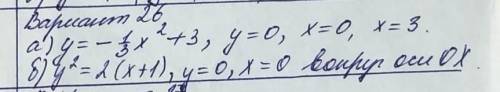 Вариант 26
а) y = -1/3 x² + 3, y = 0, x = 0, x = 3.
б) y² = 2(x+1), y = 0, x = 0 вокруг оси OX.